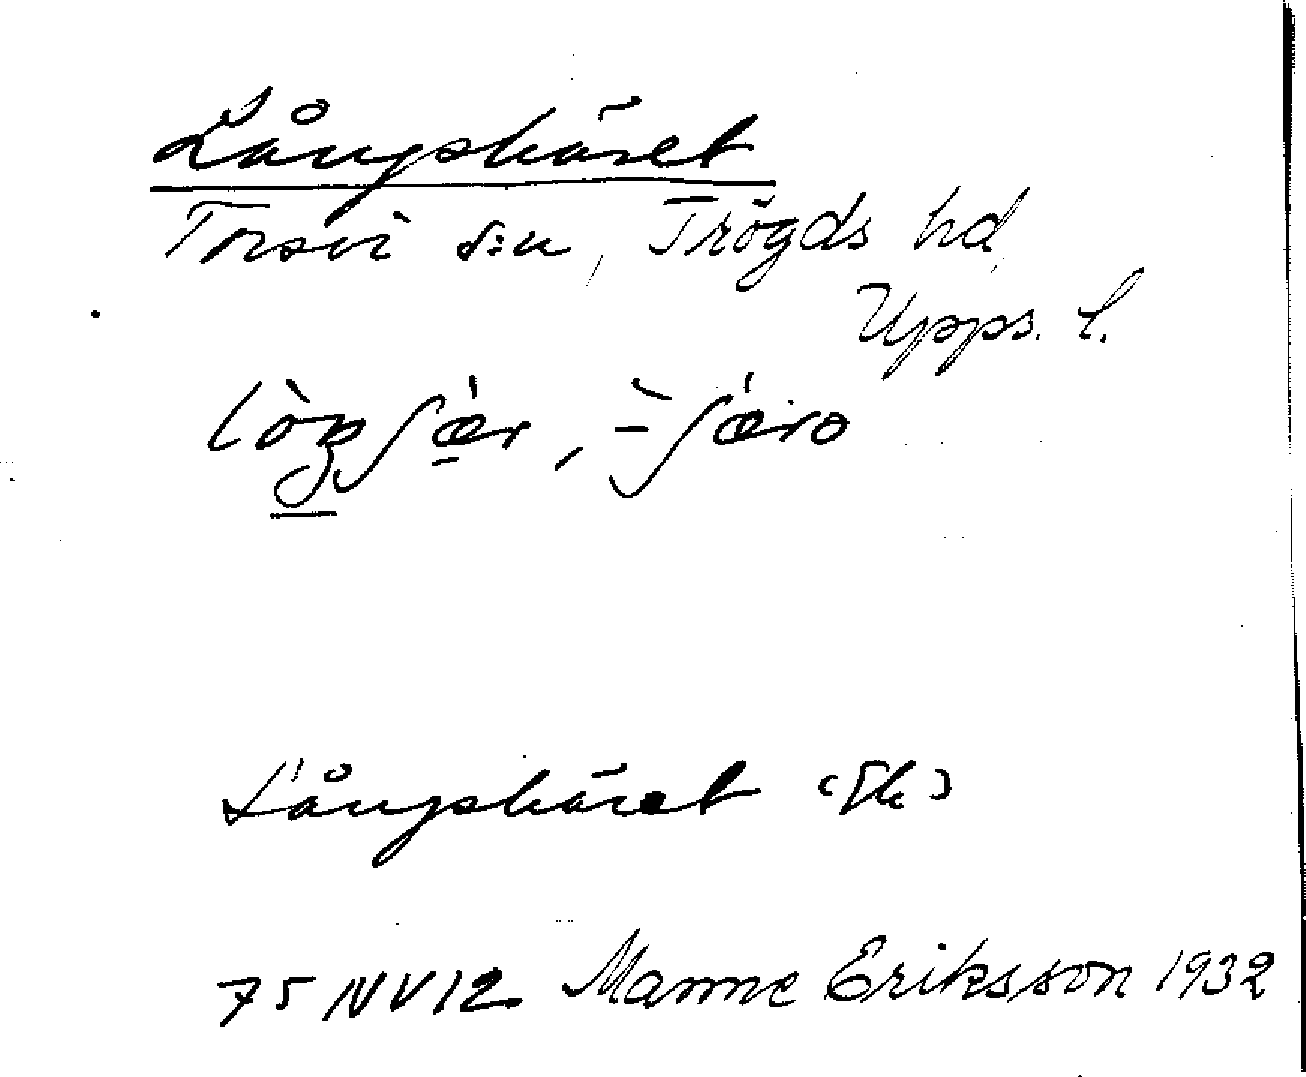 Långskäret
Torsvi s:n, Trögds hd
Upps. l.
Långskäret (Sk)
75 NV 12 Manne Eriksson 1932